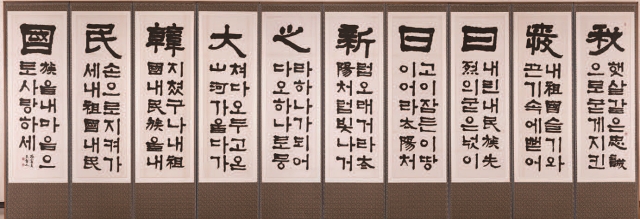 我
햇살같은忠誠
으로굳게지킨
愛
내祖國슬기와
끈기속에뻗어
日
내린내民族先
烈의굳은넋이
日
고이잠든이땅
이어라太陽처
新
럼오래거라太
陽처럼빛나거
之
라하나가되어
다오하나로뭉
大
쳐다오두고온
山河가울다가
韓
지쳤구나내祖
國내民族을내
民
손으로지켜가
세내祖國내民
國
族을내마음으
로사랑하세